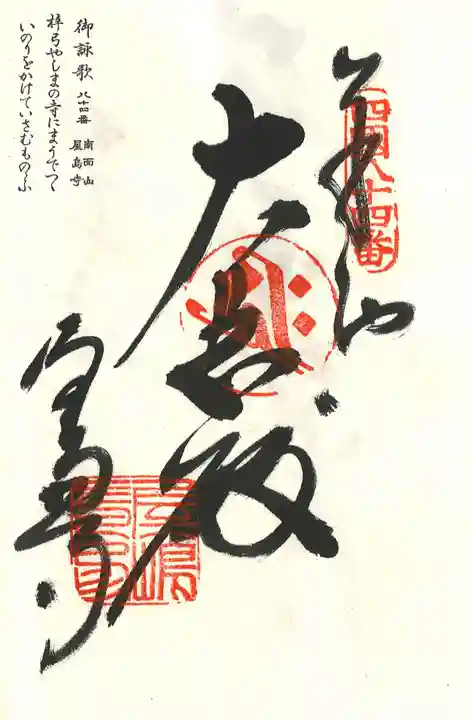 奉納
四国八十四番
大悲殿
屋島寺
御詠歌 八十四番 南面山
屋島寺
梓弓やしまの寺にまうでつゝ
いのりをかけていさむものゝふ